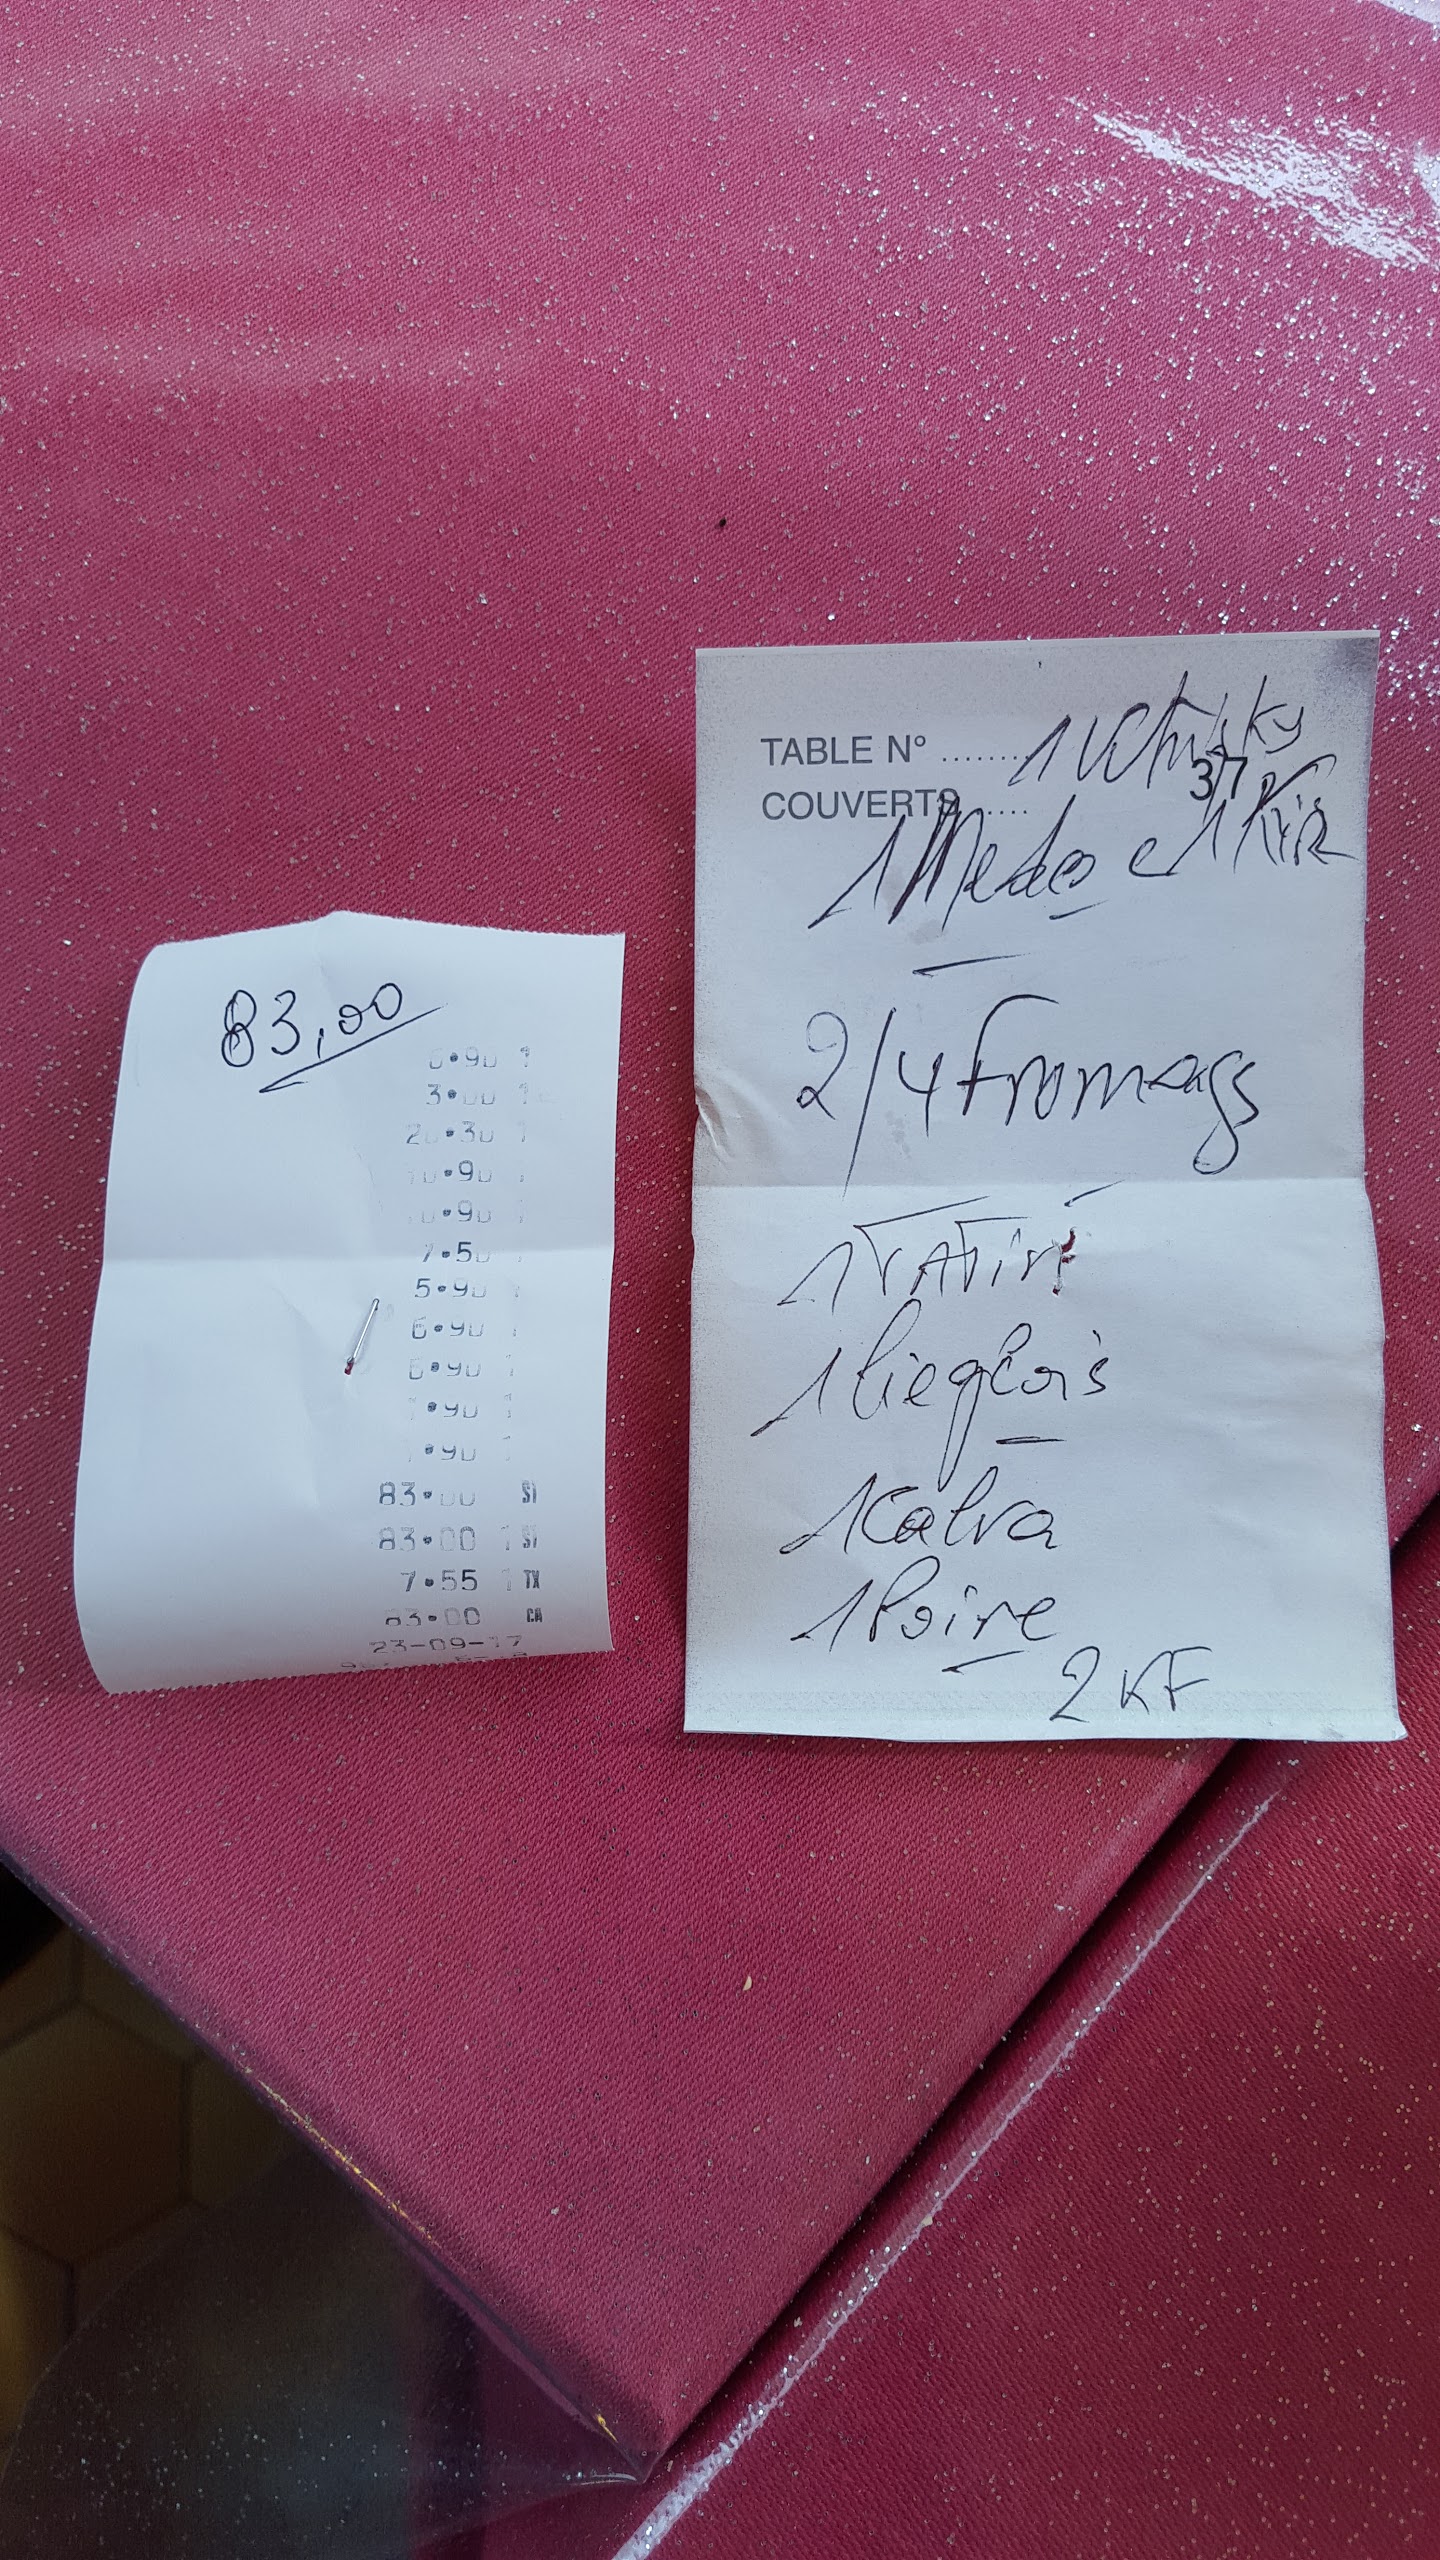 83,00
6.90 1
3.00 1
20.30 1
10.90
10.90
7.50
5.90
6.90
6.90 1
1.90 1
1.90 1
83.00 ST
83.00 1 ST
7.55 1 TX
83.00 CA
23-09-17
TABLE N° ........ 1 Whisky
37
COUVERTS .....
1 Kir
2/4 Fromags
1 TATin
1 liegeois
1 Calva
1 Poire
2 KF